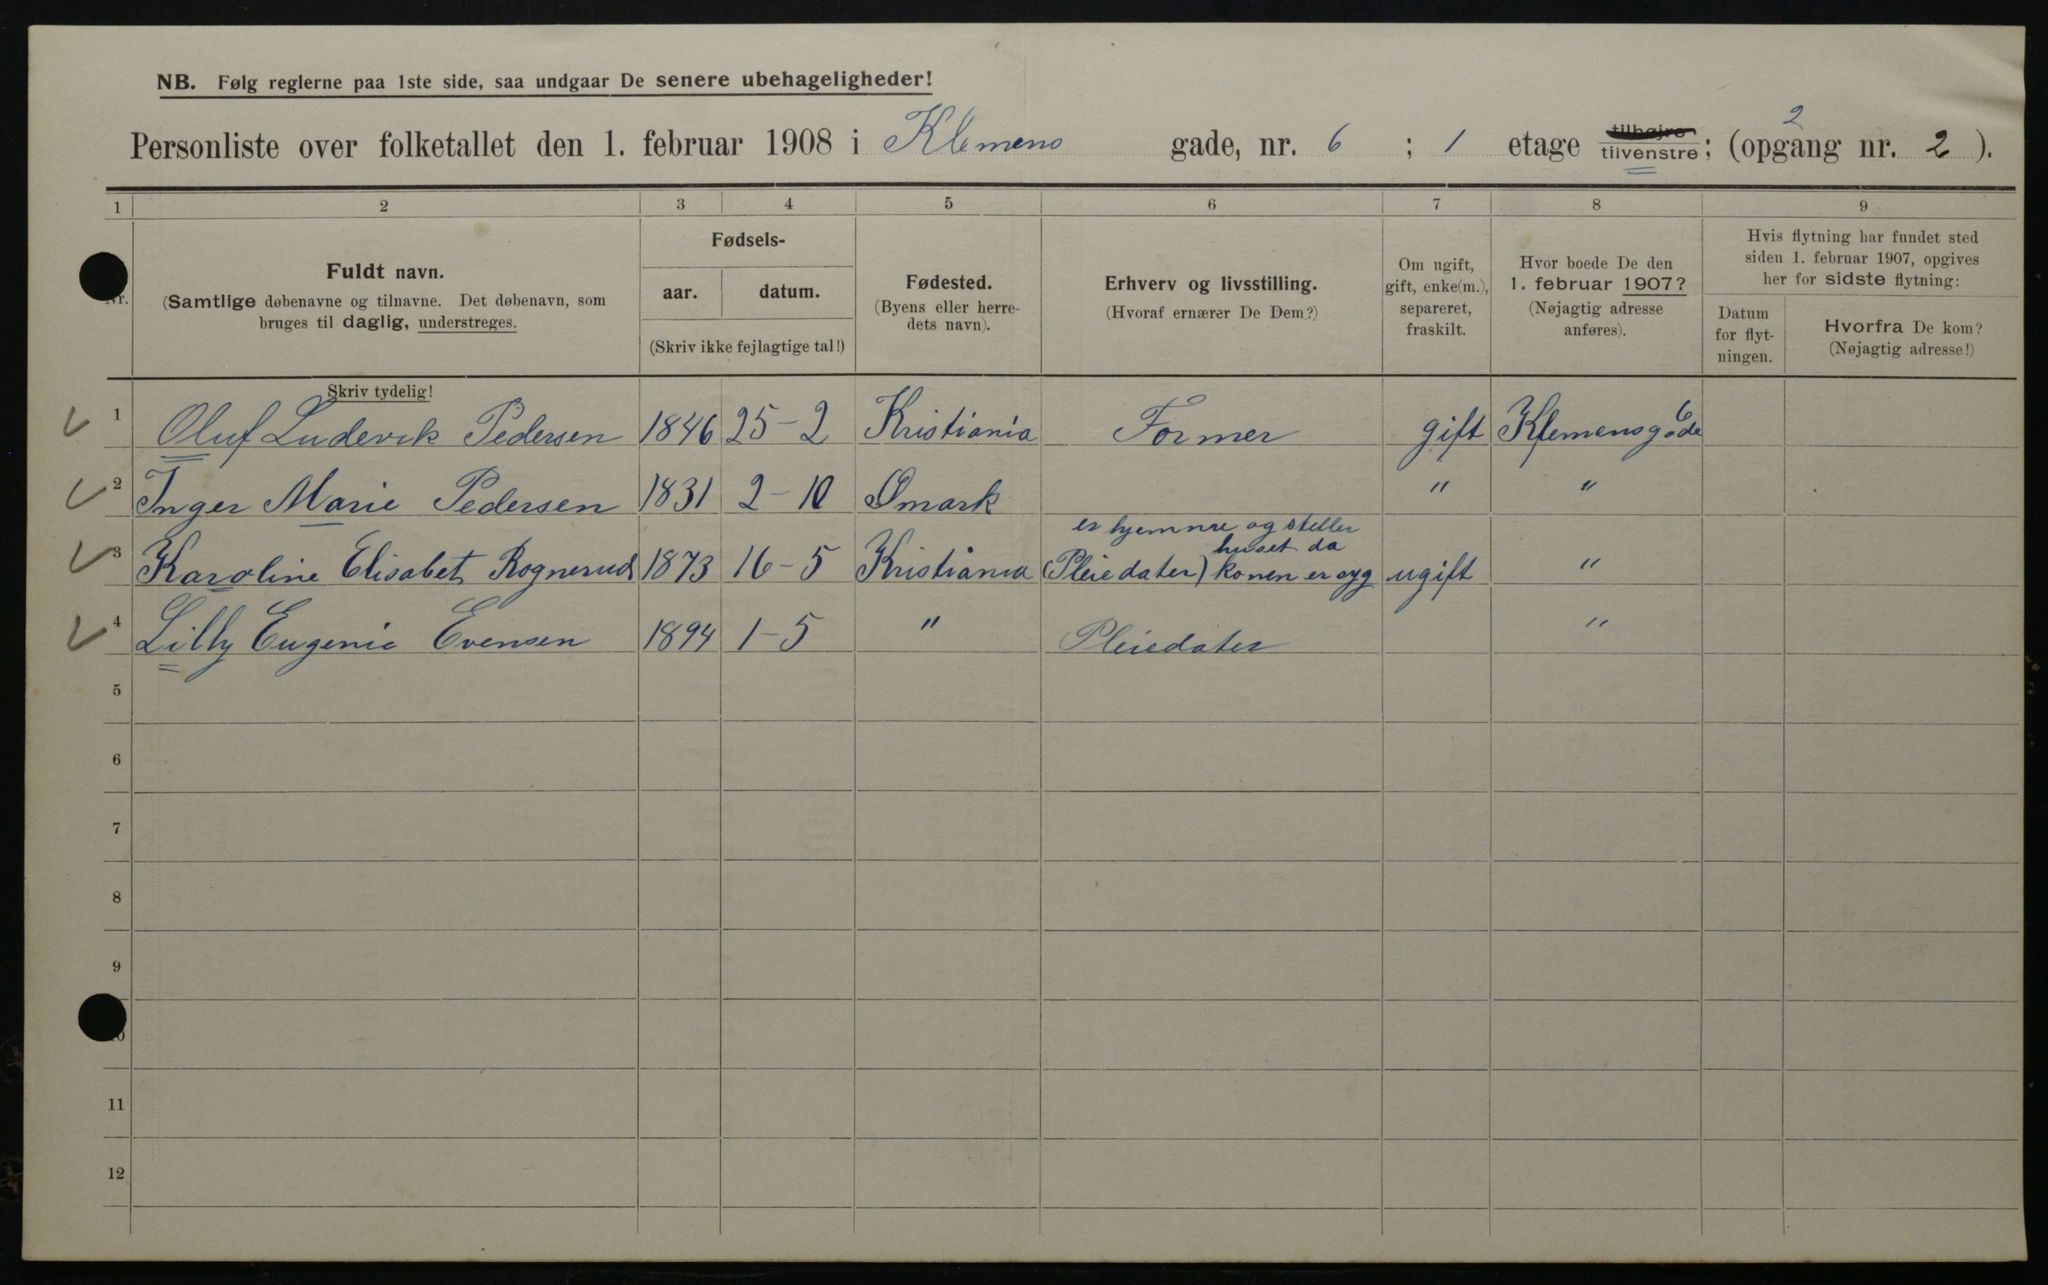 NB. Følg reglerne paa 1ste side, saa undgaar De senere ubehageligheder!
2
Personliste over folketallet den 1. februar 1908 i Klemens gade, nr. 6 ; 1 etage tilhøjre tilvenstre; (opgang nr. 2 ).
1 2 3 4 5 6 7 8 9
Nr.
Fuldt navn.
(Samtlige døbenavne og tilnavne. Det døbenavn, som
bruges til daglig, understreges.
Fødsels-
aar. datum.
(Skriv ikke fejlagtige tal!)
Fødested.
(Byens eller herre-
dets navn).
Erhverv og livsstilling.
(Hvoraf ernærer De Dem?)
Om ugift,
gift, enke(m.),
separeret,
fraskilt.
Hvor boede De den
1. februar 1907?
(Nøjagtig adresse
anføres).
Hvis flytning har fundet sted
siden 1. februar 1907, opgives
her for sidste flytning:
Datum
for flyt-
ningen.
Hvorfra De kom?
(Nøjagtig adresse!)
Skriv tydelig!
1 Oluf Ludevik Pedersen 1846 25-2 Kristiania Former gift Klemensgade 6
2 Inger Marie Pedersen 1831 2-10 Ømark " "
er hjemme og steller
huset da
3 Karoline Elisabet Rognerud 1873 16-5 Kristiania (Pleiedater) konen er syg ugift "
4 Lilly Eugenie Evensen 1894 1-5 " Pleiedater "
5
6
7
8
9
10
11
12